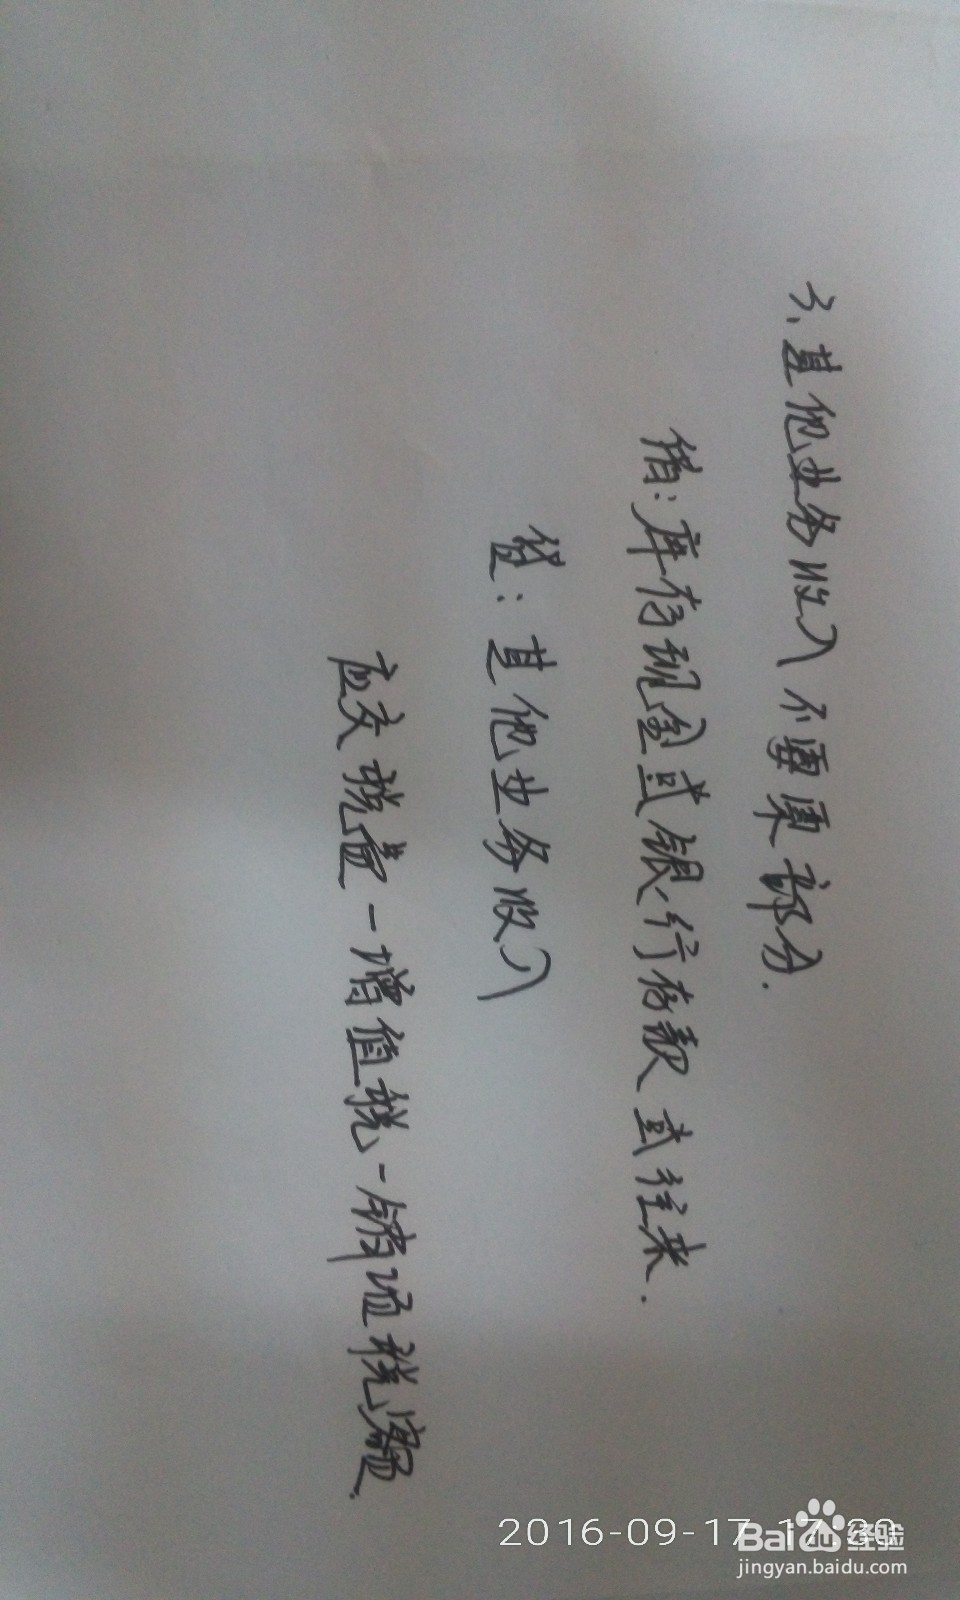 3、其他业务收入不要票部分.
借：库存现金或银行存款或往来.
贷：其他业务收入
应交税费-增值税-销项税额.
2016-09-17 17:20
Bai 经验
jingyan.baidu.com